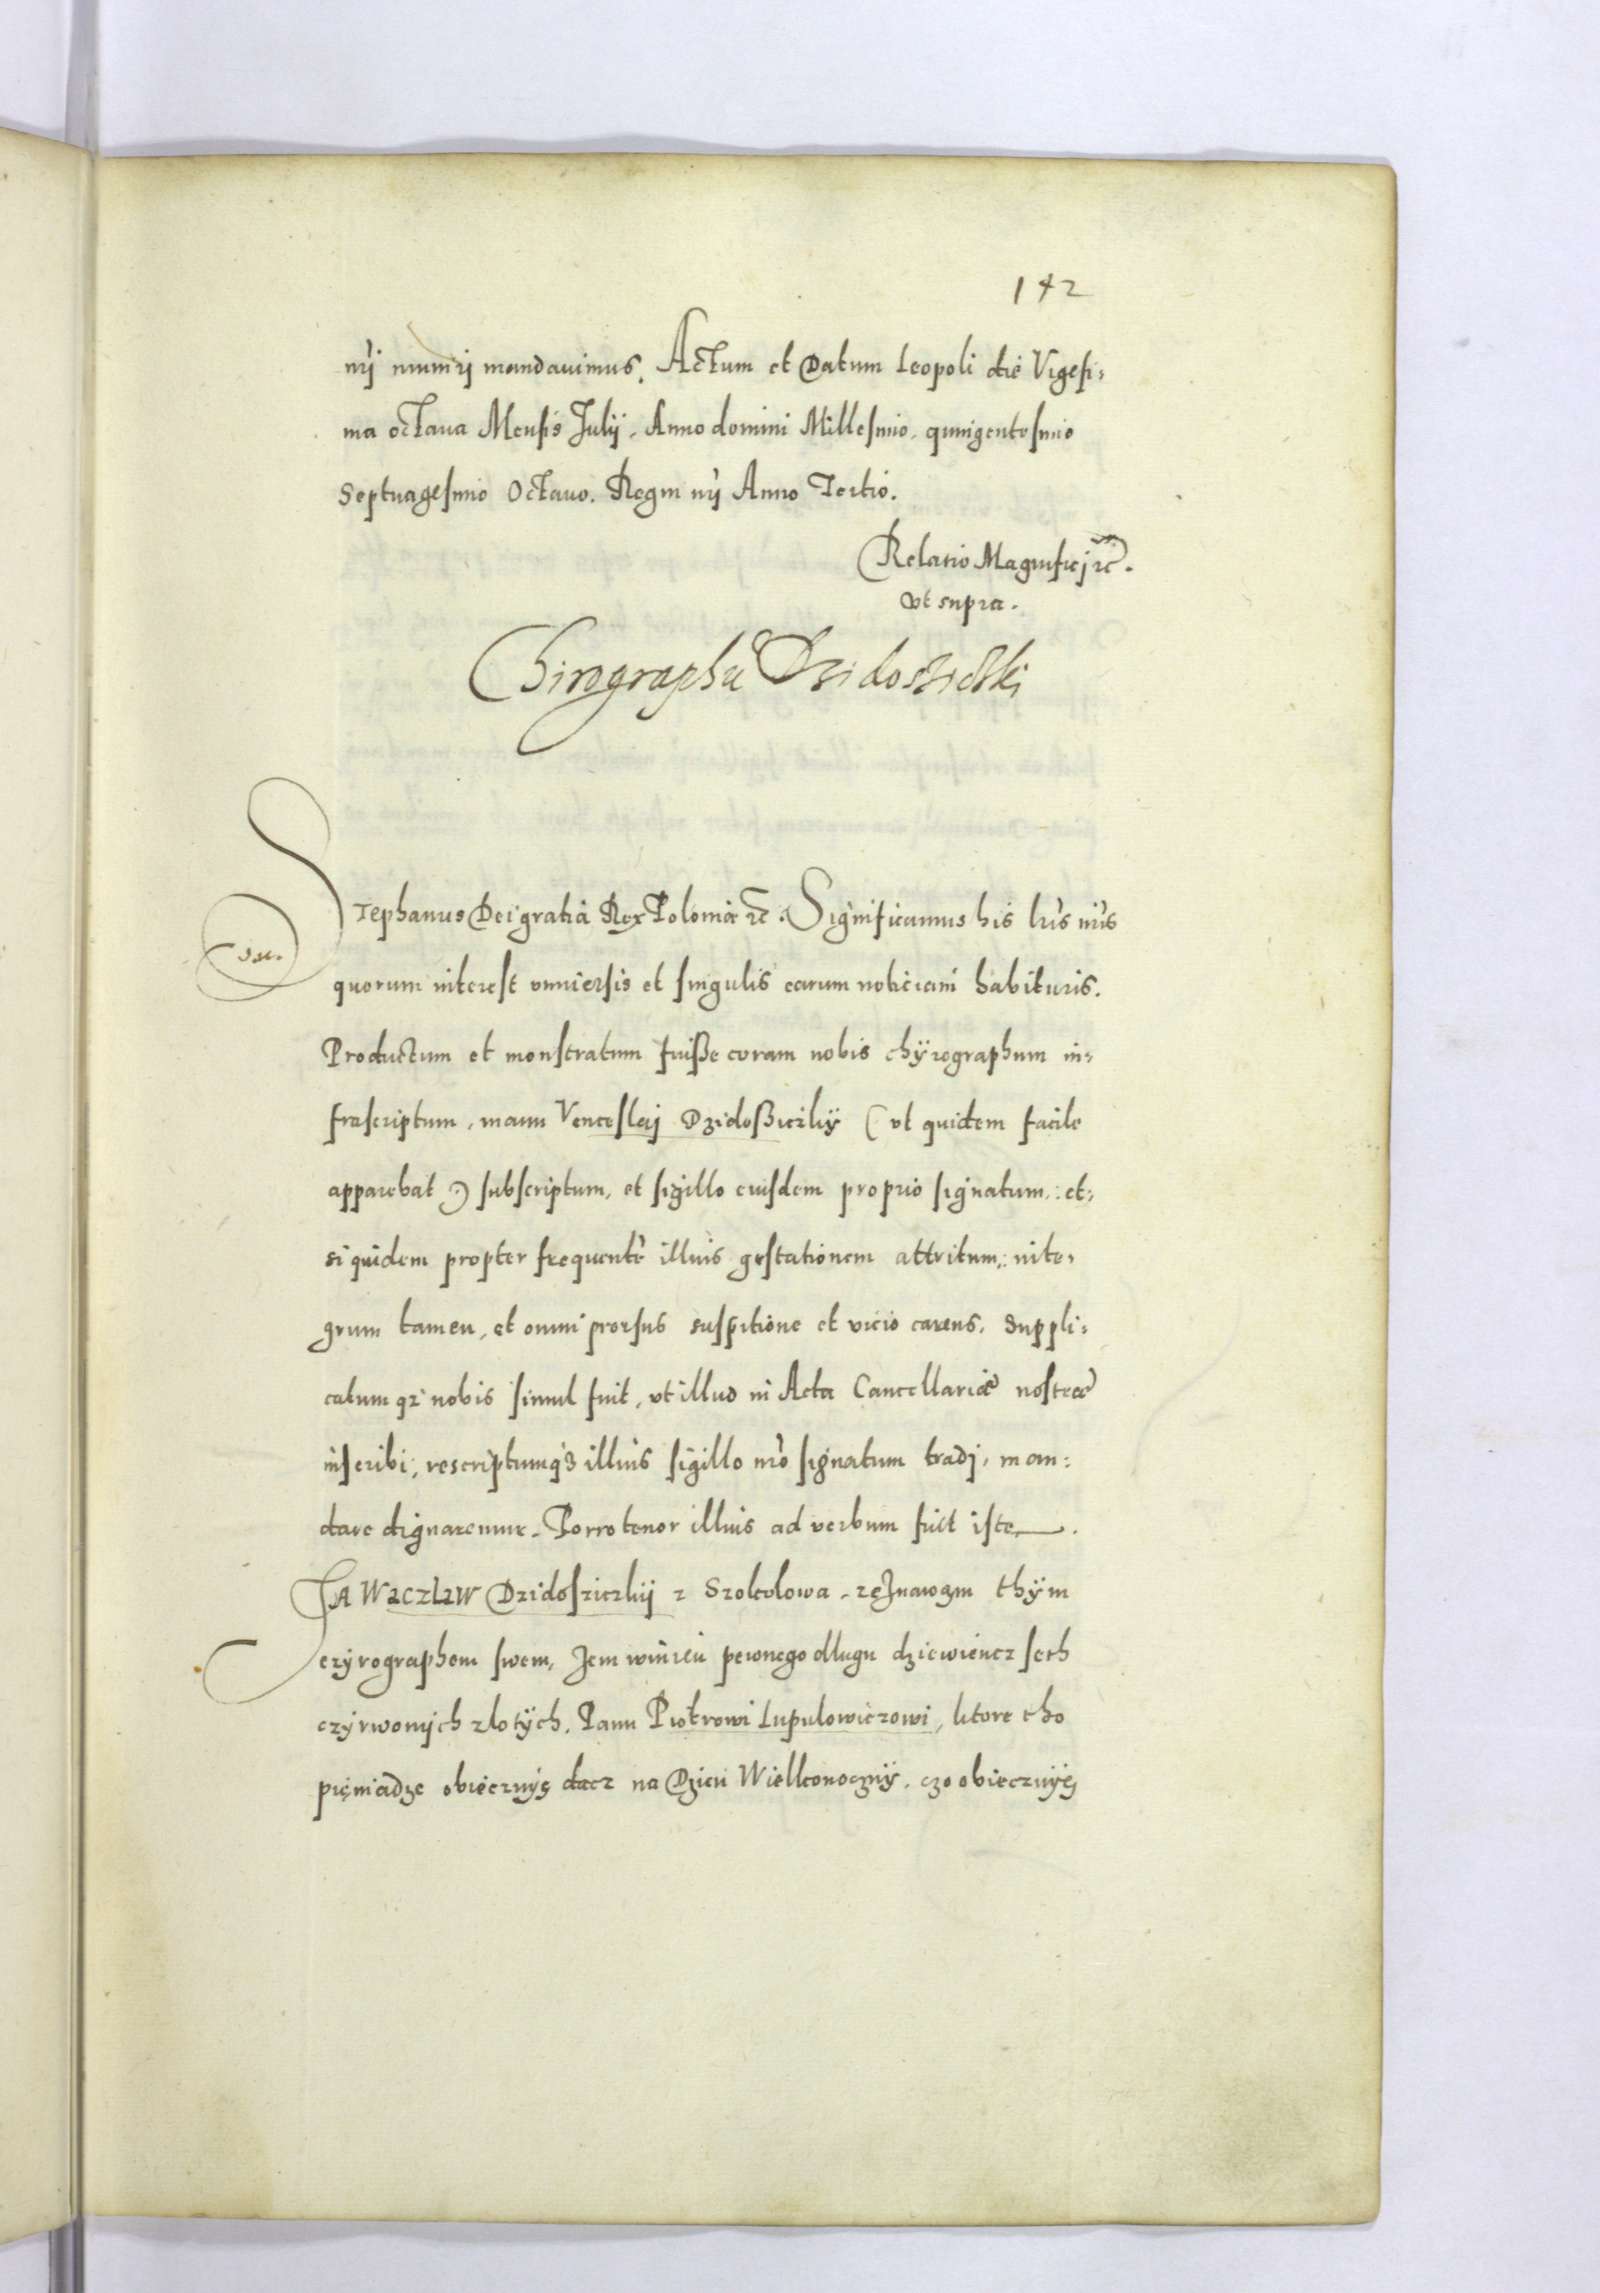 142
nr̃i muniri mandauimus. Actum et Datum Leopoli die Vigesi,
ma octaua Mensis Julij. Anno domini Millesimo. quingentesimo
Septuagesimo Octauo. Regni nr̃i Anno Tertio.
Relatio Magnificj ꝛc̃.
vt supra.
Chirographũ Dzidoszicski
Stephanus Dei gratia Rex Poloniæ ꝛc̃. Significamus his lr̃is nr̃is
quorum interest vniuersis et singulis earum noticiam habituris.
Productum et monstratum fuiße coram nobis chÿrographum in,
frascriptum, manu Venceslaj Dzidoßiczkÿ (vt quidem facile
apparebat) subscriptum, et sigillo eiusdem proprio signatum: et,
si quidem propter frequentẽ illius gestationem attritum: inte,
grum tamen, et omni prorsus suspitione et vicio carens. Suppli,
catum qȝ nobis simul fuit, vt illud in Acta Cancellariæ nostræ
inscribi, rescriptumqȝ illius sigillo nr̃o signatum tradj, man:
dare dignaremur. Porro tenor illius ad verbum fuit iste.
JA Waczław Dzidosziczkij z Szokolowa. zeznawam thÿm
czyrographem swem, Jem winien pewnego dlugu dziewiencz seth
czyrwonych zlotÿch. Panu Piotrowi Lupulowiczowi, ktore tho
pięniadze obieczuÿę dacz na Dzien Wielkonocznÿ. czo obieczuÿę